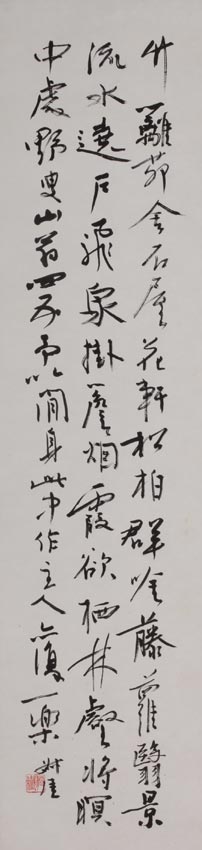 竹籬茆舍石屋花軒松柏群吟藤蘿翳景
流水遶戶飛泉掛簷烟霞欲栖林壑將暝
中處野叟山翁四五予以閒身此中作主人亦復一樂